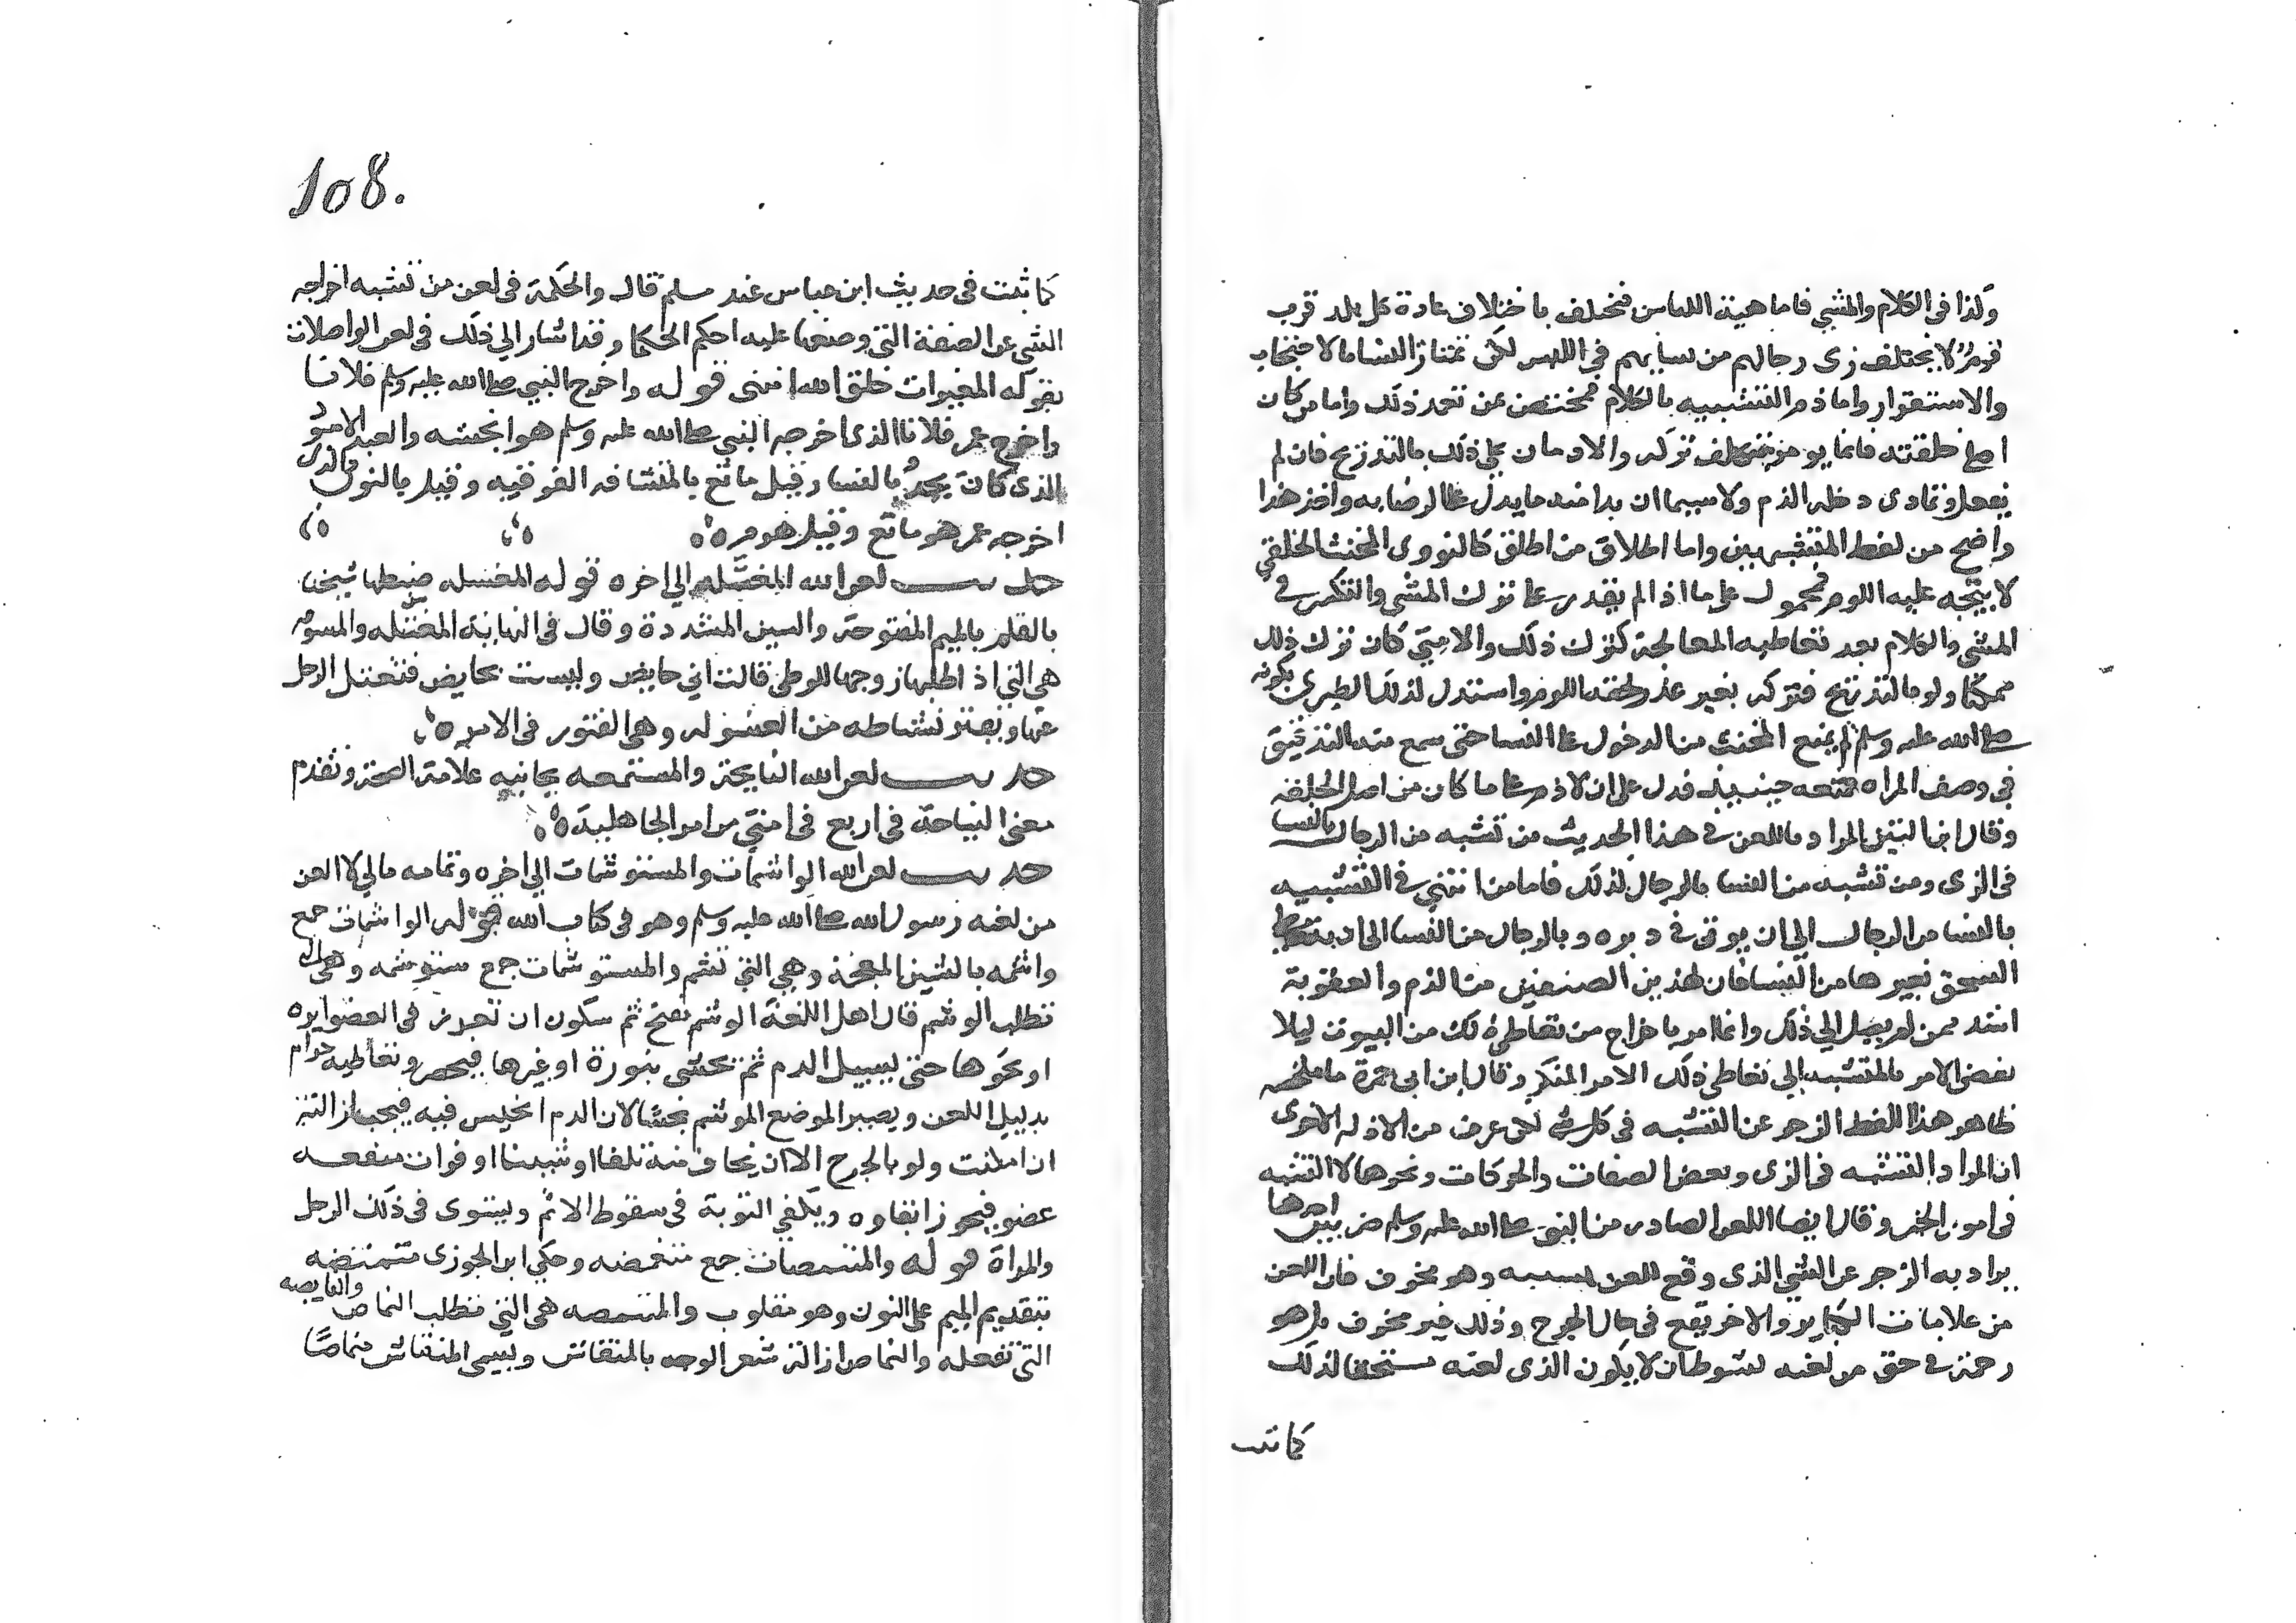 وكذا في الكلام والمشي فاما هيئة اللباس فتختلف باختلاف عادة كل بلد فرب
قوم لا يختلف زي رجالهم من نسايهم في اللبس لكن تمتاز النسا بالاحتجاب
والاستتار واما ذم التشبيه بالكلام فمختص بمن تعمد ذلك واما من كان
اصل خلقته فانما يومر بتكلف تركه والادمان على ذلك بالتدريج فان لم
يفعل وتمادى دخله الذم ولا سيما ان بدا منه ما يدل على الرضا به واخذ هذا
واضح من لفظ المتشبهين واما اطلاق من اطلق كالنووى المخنث الخلقي
لا يتجه عليه اللوم فمحمول على ما اذا لم يقدر على ترك المشي والتكسر في
المشي والكلام بعد تعاطيه المعالجة لترك ذلك والا متي كان ترك ذلك
ممكنا ولو بالتدريج فتركه بغير عذر لحقه اللوم واستدل لذلك الطبري بكونه
صلى الله عليه وسلم لم يمنع المخنث من الدخول على النسا حتى سمع منه التدقيق
في وصف المراه فمنعه حينييذ فدل على ان لا ذم على ما كان من اصل الخلقه
وقال ابن التين المراد باللعن في هذا الحديث من تشبه من الرجال بالنسا
في الزى ومن تشبه من النسا بالرجال لذلك فاما من انتهي في التشبيه
بالنسا من الرجال الي ان يوتى في دبره وبالرجال من النسا الي ان تتعاطى
السحق بغيرها من النسا فان لهذين الصنفين من الذم والعقوبة
اشد ممن لم يصل الي ذلك وانما امر باخراج من تعاطى ذلك من البيوت ليلا
يفضي الامر بالمتشبه الي تعاطي ذلك الامر المنكر وقال ابن ابى جمرة ما ملخصه
ظاهر هذا اللفظ الزجر عن التشبه في كل شي لكن عرف من الادله الاخرى
ان المراد التشبه في الزى وبعض الصفات والحركات ونحوها لا التشبه
في امور الخير وقال ايضا اللعن الصادر من النبي صلى الله عليه وسلم ضربين احدها
يراد به الزجر عن الشي الذى وقع اللعن بسببه وهو مخوف فان اللعن
من علامات الكباير والاخر يقع في حال الحرج وذلك غير مخوف بل هو
رحمة في حق من لعنه بشرط ان لا يكون الذى لعنه مستحقا لذلك
كما ثبت
108.
كما ثبت في حديث ابن عباس عند مسلم قال والحكمة في لعن من تشبه اخراجه
الشي عن الصفة التي وضعها عليه احكم الحكما وقد اشار الي ذلك في لعن الواصلات
بقوله المغيرات خلق الله انتهى قوله واخرج النبي صلى الله عليه وسلم فلانا
واخرج عمر فلانا الذى اخرجه النبي صلى الله عليه وسلم هو انجشه والعبد الاسود
الذى كان يحدو بالنسا وقيل ماتع بالمثناه الفوقيه وقيل بالنون والذى
اخرجه عمر هو ماتع وقيل هدم ه
حديث لعن الله المغسله الي اخره قوله المغسله ضبطها شيخنا
بالقلم بالميم المفتوحة والسين المشددة وقال في النهاية المغسله والمسوفه
هي التي اذا طلبها زوجها للوطي قالت اني حايض وليست بحايض فتغسل الرجل
عنها وتفتر نشاطه من الغسوله وهي الفتور في الامر ه
حديث لعن الله النايحة والمستمعه بجانبه علامة الصحة وتقدم
معنى النياحة في اربع في امتي من امر الجاهلية ه
حديث لعن الله الواشمات والمستوشمات الي اخره وتمامه مالي لا العن
من لعنه رسول الله صلى الله عليه وسلم وهو في كتاب الله قوله الواشمات جمع
واشمه بالشين المعجمة وهي التي تشم والمستوشمات جمع مستوشمه وهي التي
تطلب الوشم قال اهل اللغة الوشم بفتح ثم سكون ان تغرز في العضو ابره
او نحوها حتى يسيل الدم ثم تحشى بنورة او غيرها فيخضر وتعاطيه حرام
بدليل اللعن ويصير الموضع الموشم نجسًا لان الدم انحبس فيه فيجب ازالته
ان امكنت ولو بالجرح الا ان يخاف منه تلفا او شينا او فوات منفعه
عضو فيجوز ابقاوه ويكفي التوبة في سقوط الاثم ويستوى في ذلك الرجل
والمراة قوله والمتنمصات جمع متنمصه وحكي ابن الجوزى متنمصه
بتقديم الميم على النون وهو مقلوب والمتنمصه هي التي تطلب النماص والنامصه
التي تفعله والنماص ازالة شعر الوجه بالمنقاش ويسمى المنقاش منماصًا